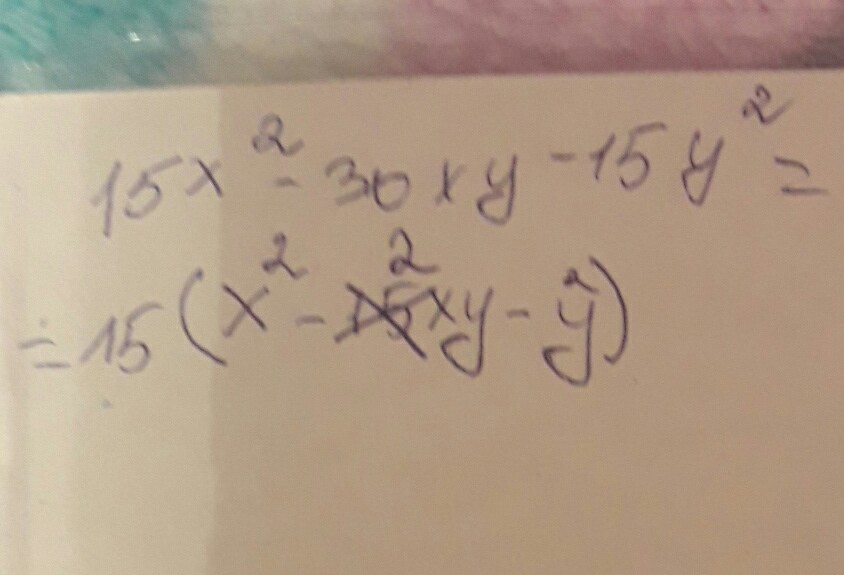 15x² - 30xy - 15y² =
= 15(x² - 2xy - y²)